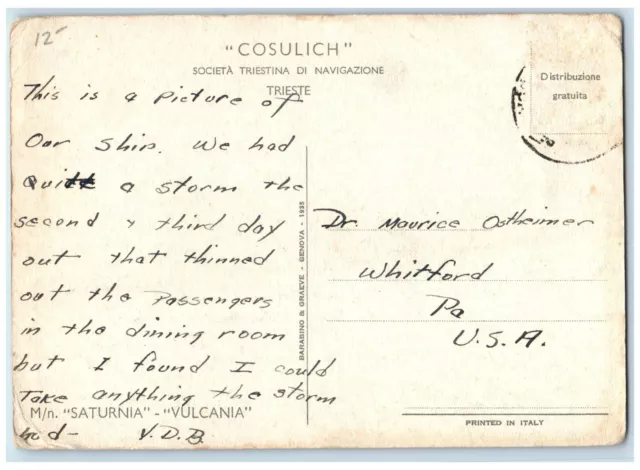 12-
"COSULICH"
SOCIETÀ TRIESTINA DI NAVIGAZIONE
TRIESTE
Distribuzione
gratuita
This is a picture of
Our ship. We had
Quite a storm the
second & third day
out that thinned
out the passengers
in the dining room
but I found I could
Take anything the storm
had - V.D.B
M/n. "SATURNIA" - "VULCANIA"
BARABINO & GRAEVE - GENOVA - 1935
Dr. Maurice Ostheimer
Whitford
Pa
U.S.A.
PRINTED IN ITALY